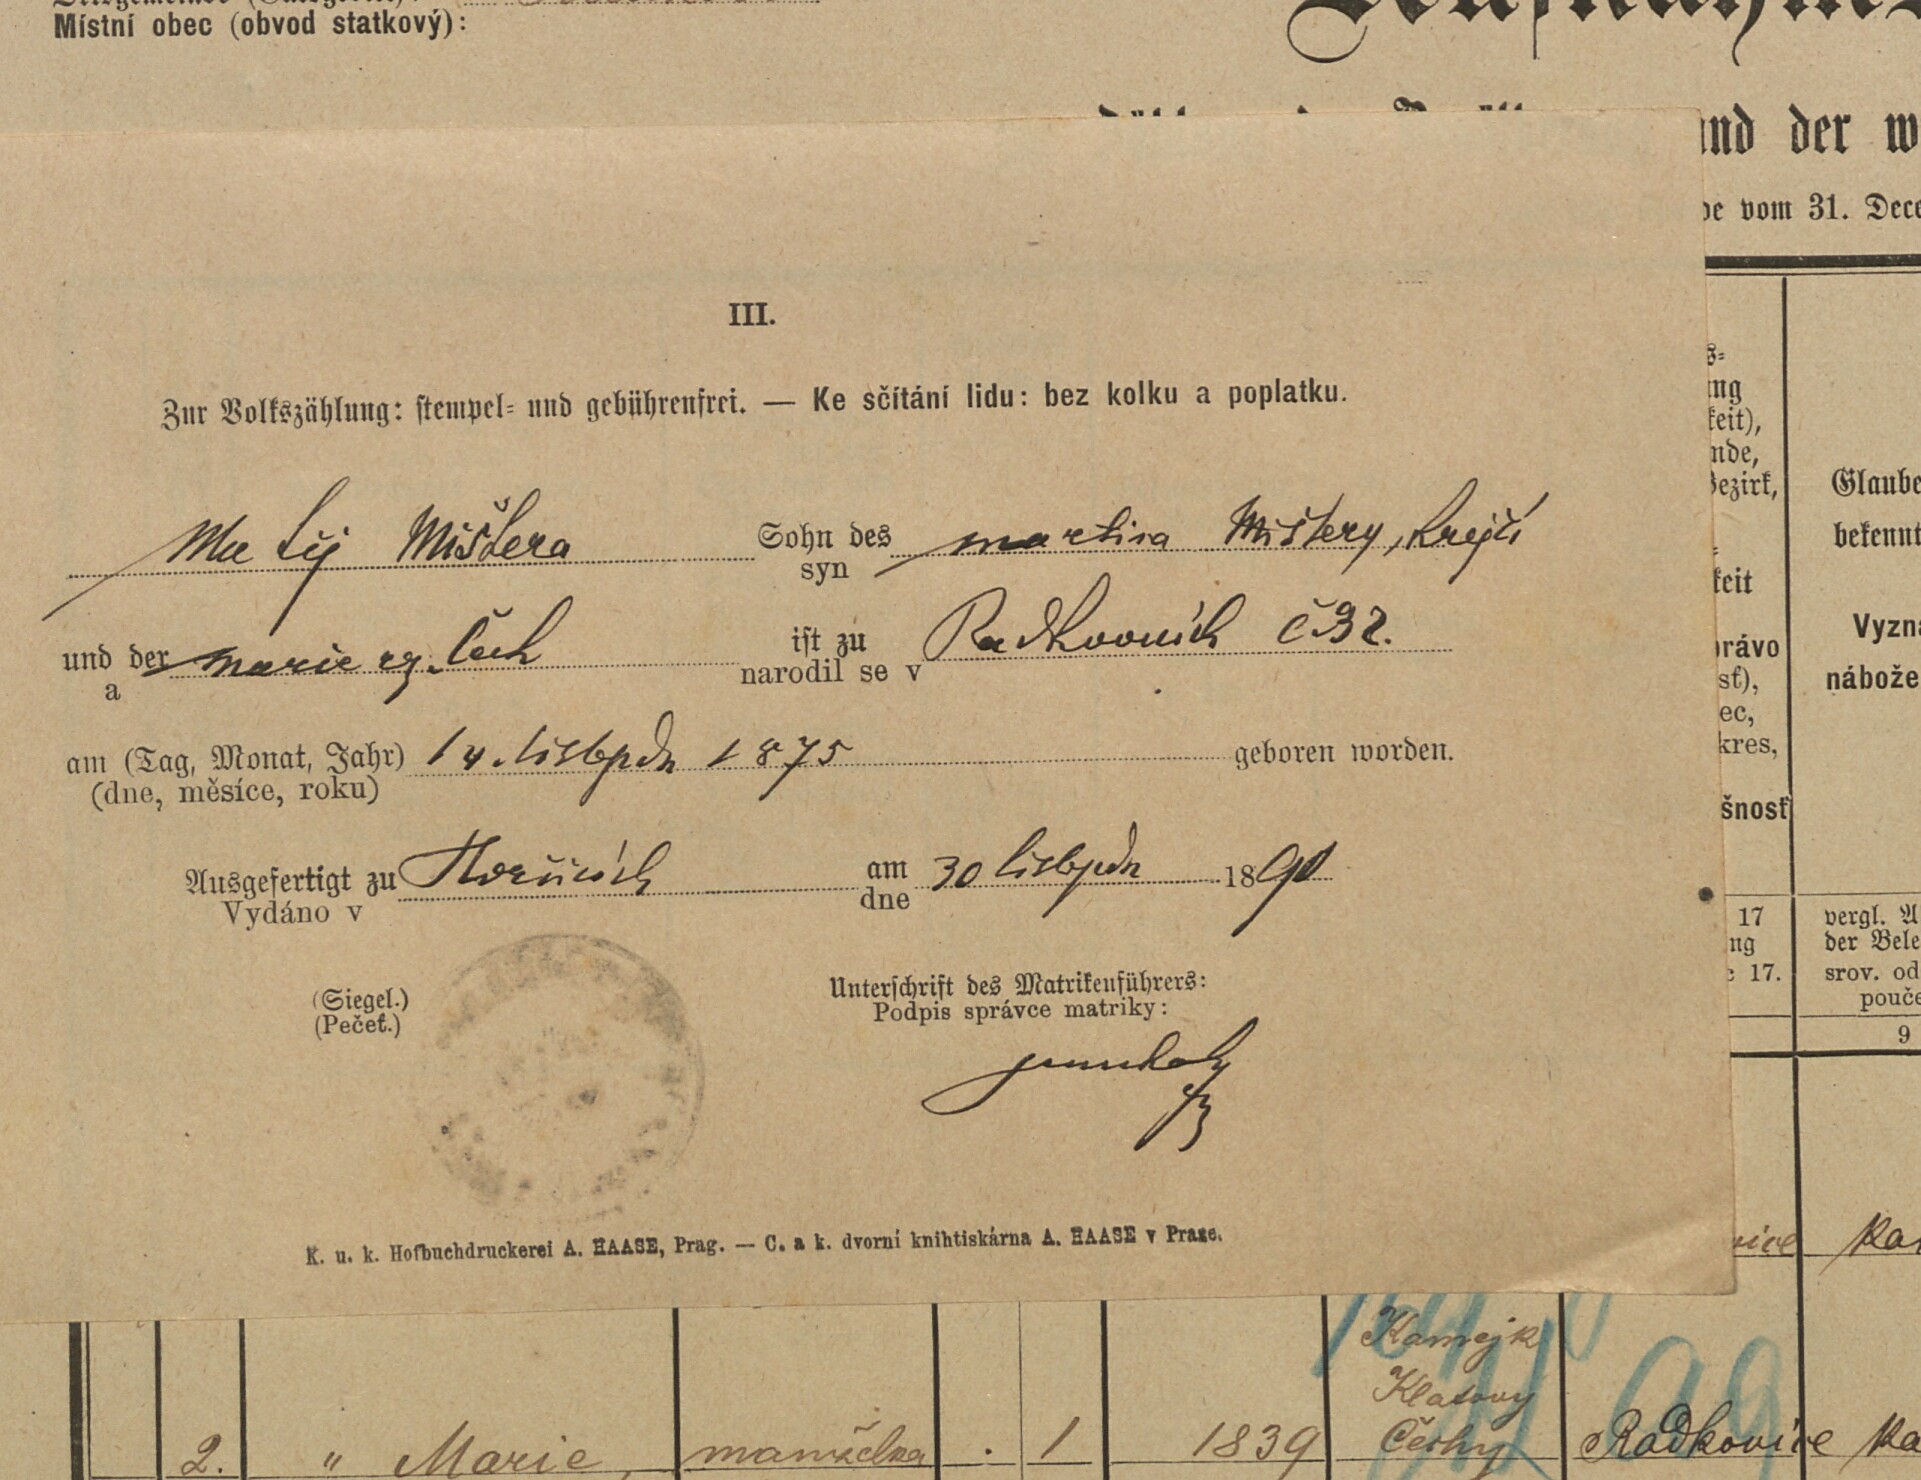 Místní obec (obvod statkový):
und der
vom 31. Dece
III.
Zur Volkszählung: stempel- und gebührenfrei. — Ke sčítání lidu: bez kolku a poplatku.
Matěj Mištera Sohn des martina Mištery, krejčí
syn
und der marie rz. Čech ist zu Radkovicích č 32.
a narodil se v
am (Tag, Monat, Jahr) 14. listopadu 1875 geboren worden.
(dne, měsíce, roku)
Ausgefertigt zu Horšicích am 30 listopadu 1890
Vydáno v dne
(Siegel.) Unterschrift des Matrikenführers:
(Pečeť.) Podpis správce matriky:
K. u. k. Hofbuchdruckerei A. HAASE, Prag. — C. a k. dvorní knihtiskárna A. HAASE v Praze.
keit),
Bezirk,
Glaube
bekennt
keit
právo
Vyzná
nábože
kres,
17
vergl. A
der Bele
17.
srov. od
pouče
9
Kamejk
Klatovy
2. " Marie, manželka . 1 1839 Čechy Radkovice ka